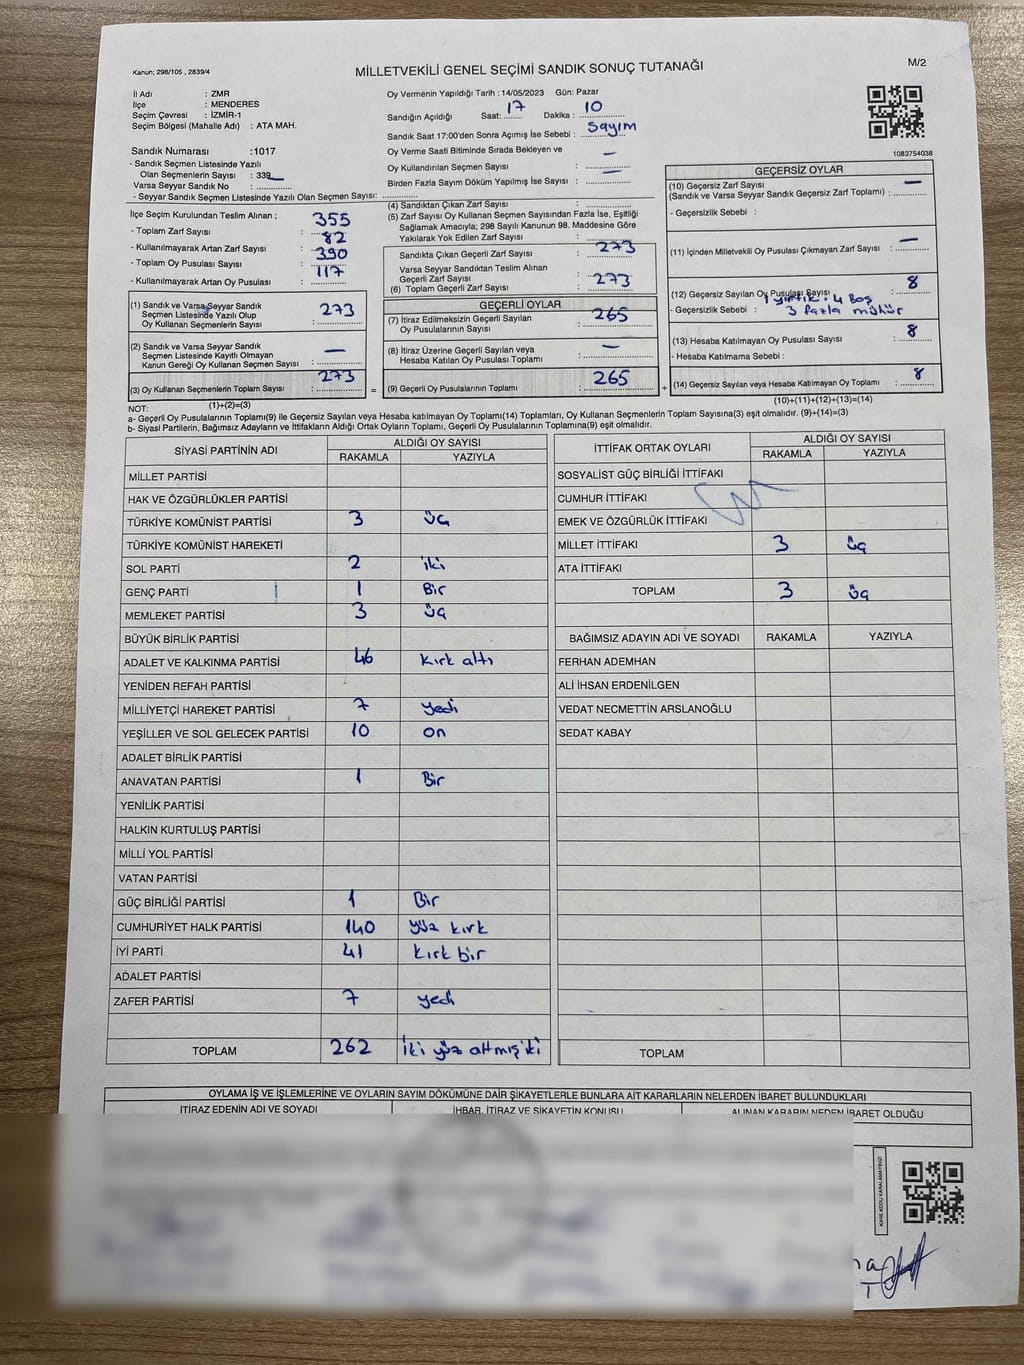 Kanun; 298/105 , 2839/4
MİLLETVEKİLİ GENEL SEÇİMİ SANDIK SONUÇ TUTANAĞI
M/2
İl Adı : ZMR
İlçe : MENDERES
Seçim Çevresi : İZMİR-1
Seçim Bölgesi (Mahalle Adı) : ATA MAH.
Sandık Numarası :1017
- Sandık Seçmen Listesinde Yazılı
Olan Seçmenlerin Sayısı : 339
Varsa Seyyar Sandık No :
- Seyyar Sandık Seçmen Listesinde Yazılı Olan Seçmen Sayısı:
İlçe Seçim Kurulundan Teslim Alınan ;
- Toplam Zarf Sayısı : 355
- Kullanılmayarak Artan Zarf Sayısı : 82
- Toplam Oy Pusulası Sayısı : 390
- Kullanılmayarak Artan Oy Pusulası : 117
(1) Sandık ve Varsa Seyyar Sandık
Seçmen Listesinde Yazılı Olup
Oy Kullanan Seçmenlerin Sayısı : 273
(2) Sandık ve Varsa Seyyar Sandık
Seçmen Listesinde Kayıtlı Olmayan
Kanun Gereği Oy Kullanan Seçmen Sayısı : —
(3) Oy Kullanan Seçmenlerin Toplam Sayısı : 273 =
(1)+(2)=(3)
Oy Vermenin Yapıldığı Tarih : 14/05/2023 Gün: Pazar
Sandığın Açıldığı Saat: 17 Dakika : 10
Sandık Saat 17:00'den Sonra Açımış İse Sebebi : Sayım
Oy Verme Saati Bitiminde Sırada Bekleyen ve
Oy Kullandırılan Seçmen Sayısı : —
Birden Fazla Sayım Döküm Yapılmış İse Sayısı : —
(4) Sandıktan Çıkan Zarf Sayısı :
(5) Zarf Sayısı Oy Kullanan Seçmen Sayısından Fazla İse, Eşitliği
Sağlamak Amacıyla; 298 Sayılı Kanunun 98. Maddesine Göre
Yakılarak Yok Edilen Zarf Sayısı :
Sandıkta Çıkan Geçerli Zarf Sayısı : 273
Varsa Seyyar Sandıktan Teslim Alınan
Geçerli Zarf Sayısı :
(6) Toplam Geçerli Zarf Sayısı : 273
GEÇERLİ OYLAR
(7) İtiraz Edilmeksizin Geçerli Sayılan
Oy Pusulalarının Sayısı : 265
(8) İtiraz Üzerine Geçerli Sayılan veya
Hesaba Katılan Oy Pusulası Toplamı : —
(9) Geçerli Oy Pusulalarının Toplamı : 265 +
1083754038
GEÇERSİZ OYLAR
(10) Geçersiz Zarf Sayısı
(Sandık ve Varsa Seyyar Sandık Geçersiz Zarf Toplamı) : —
- Geçersizlik Sebebi :
(11) İçinden Milletvekili Oy Pusulası Çıkmayan Zarf Sayısı : —
(12) Geçersiz Sayılan Oy Pusulası Sayısı : 8
- Geçersizlik Sebebi : 1 yırtık . 4 Boş
3 fazla mühür
(13) Hesaba Katılmayan Oy Pusulası Sayısı : 8
- Hesaba Katılmama Sebebi :
(14) Geçersiz Sayılan veya Hesaba Katılmayan Oy Toplamı : 8
(10)+(11)+(12)+(13)=(14)
NOT:
a- Geçerli Oy Pusulalarının Toplamı(9) ile Geçersiz Sayılan veya Hesaba katılmayan Oy Toplamı(14) Toplamları, Oy Kullanan Seçmenlerin Toplam Sayısına(3) eşit olmalıdır. (9)+(14)=(3)
b- Siyasi Partilerin, Bağımsız Adayların ve İttifakların Aldığı Ortak Oyların Toplamı, Geçerli Oy Pusulalarının Toplamına(9) eşit olmalıdır.
SİYASİ PARTİNİN ADI ALDIĞI OY SAYISI
RAKAMLA YAZIYLA
MİLLET PARTİSİ
HAK VE ÖZGÜRLÜKLER PARTİSİ
TÜRKİYE KOMÜNİST PARTİSİ 3 üç
TÜRKİYE KOMÜNİST HAREKETİ
SOL PARTİ 2 iki
GENÇ PARTİ 1 Bir
MEMLEKET PARTİSİ 3 üç
BÜYÜK BİRLİK PARTİSİ
ADALET VE KALKINMA PARTİSİ 46 kırk altı
YENİDEN REFAH PARTİSİ
MİLLİYETÇİ HAREKET PARTİSİ 7 yedi
YEŞİLLER VE SOL GELECEK PARTİSİ 10 on
ADALET BİRLİK PARTİSİ
ANAVATAN PARTİSİ 1 Bir
YENİLİK PARTİSİ
HALKIN KURTULUŞ PARTİSİ
MİLLİ YOL PARTİSİ
VATAN PARTİSİ
GÜÇ BİRLİĞİ PARTİSİ 1 Bir
CUMHURİYET HALK PARTİSİ 140 yüz kırk
İYİ PARTİ 41 kırk bir
ADALET PARTİSİ
ZAFER PARTİSİ 7 yedi
TOPLAM 262 İki yüz altmış iki
İTTİFAK ORTAK OYLARI ALDIĞI OY SAYISI
RAKAMLA YAZIYLA
SOSYALİST GÜÇ BİRLİĞİ İTTİFAKI
CUMHUR İTTİFAKI
EMEK VE ÖZGÜRLÜK İTTİFAKI
MİLLET İTTİFAKI 3 üç
ATA İTTİFAKI
TOPLAM 3 üç
BAĞIMSIZ ADAYIN ADI VE SOYADI RAKAMLA YAZIYLA
FERHAN ADEMHAN
ALİ İHSAN ERDENİLGEN
VEDAT NECMETTİN ARSLANOĞLU
SEDAT KABAY
TOPLAM
OYLAMA İŞ VE İŞLEMLERİNE VE OYLARIN SAYIM DÖKÜMÜNE DAİR ŞİKAYETLERLE BUNLARA AİT KARARLARIN NELERDEN İBARET BULUNDUKLARI
İTİRAZ EDENİN ADI VE SOYADI İHBAR, İTİRAZ VE ŞİKAYETİN KONUSU ALINAN KARARIN NEDEN İBARET OLDUĞU
KARE KODU KARALAMAYINIZ!